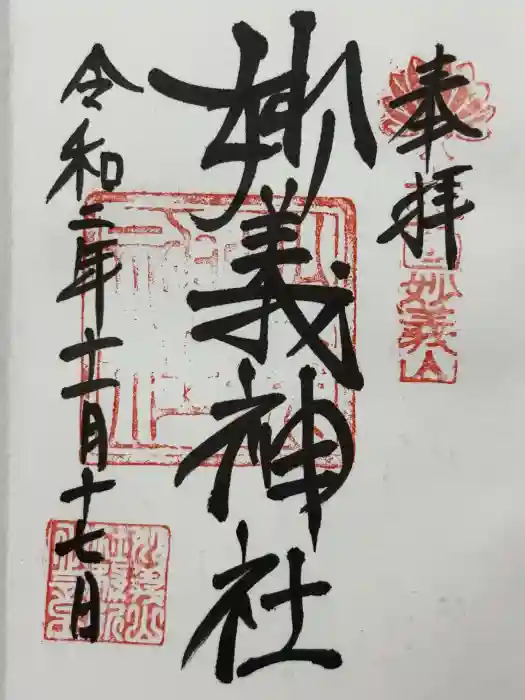 奉拝
妙義山
妙義神社
令和二年十一月十七日